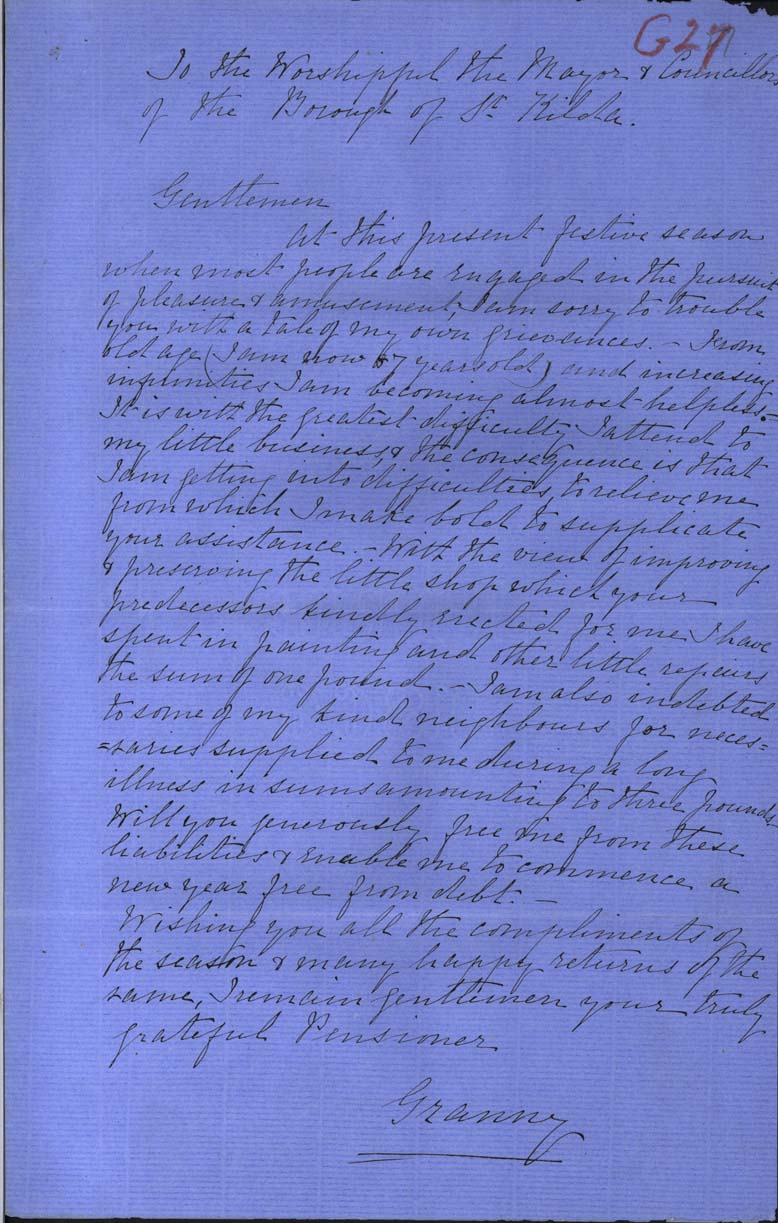 G27
To the Worshipful the Mayor & Councillors
of the Borough of St Kilda.
Gentlemen
At this present festive season
when most people are engaged in the pursuit
of pleasure & amusement, I am sorry to trouble
you with a tale of my own grievances. - From
old age (I am now 87 years old) and increasing
infirmities I am becoming almost helpless. -
It is with the greatest difficulty I attend to
my little business, & the consequence is that
I am getting into difficulties, to relieve me
from which I make bold to supplicate
your assistance. - With the view of improving
& preserving the little shop which your
predecessors kindly erected for me I have
spent in painting and other little repairs
the sum of one pound. - I am also indebted
to some of my kind neighbours for neces=
=saries supplied to me during a long
illness in sums amounting to three pounds -
Will you generously free me from these
liabilities & enable me to commence a
new year free from debt. -
Wishing you all the compliments of
the season & many happy returns of the
same, I remain gentlemen your truly
grateful Pensioner
Granny